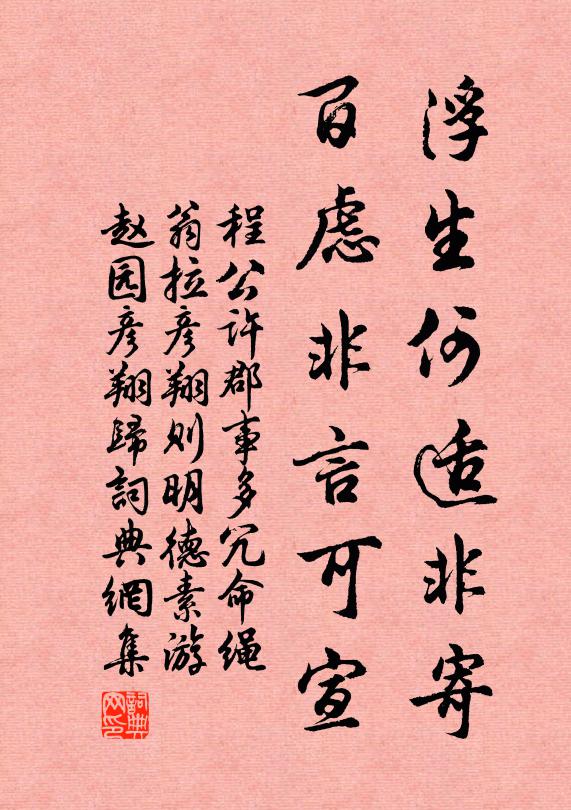 浮生何适非寄
百虑非言可宣
程公许郡事多冗命绳
翁拉彦翔则明德素游
赵园彦翔歸詞典網集
詞典
网印